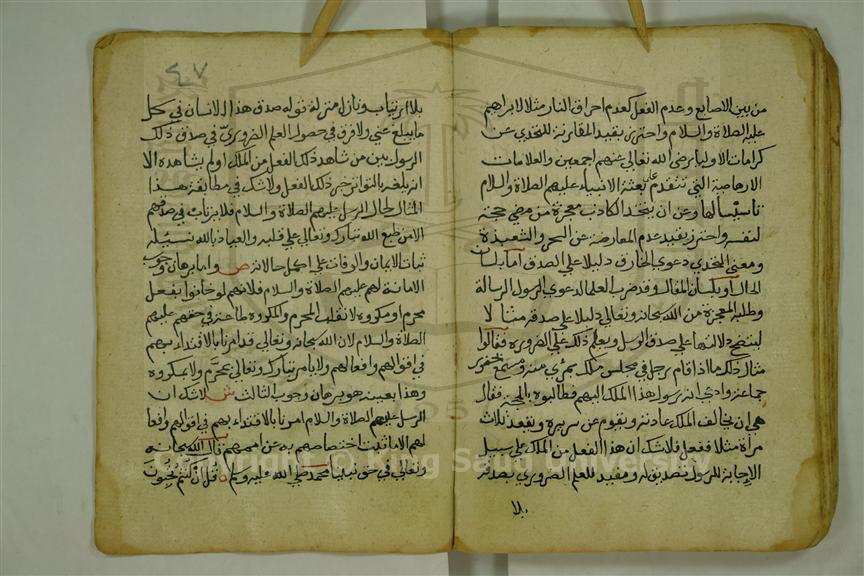 من بين الاصابع وعدم الفعل كعدم احراق النار مثلا لابراهيم
عليه الصلاة والسلام واحترز بقيد المقارنة للتحدي عن
كرامات الاوليا رضي الله تعالى عنهم اجمعين والعلامات
الارهاصية التي تتقدم على بعثة الانبياء عليهم الصلاة والسلام
تاسيسا لها وعن ان يتخذ الكاذب معجزة من مضي حجة
لنفسه واحترز بقيد عدم المعارضة عن السحر والشعبذة
ومعنى التحدي دعوي الخارق دليلا على الصدق اما بلسان
الحال او بلسان المقال وقد ضرب العلما لدعوي الرسول الرسالة
وطلبه المعجزة من الله سبحانه وتعالى دليلا على صدقه مثالا
ليتضح دلالتها على صدق الرسل ويعلم ذلك على الضرورة فقالوا
مثال ذلك ما اذا قام رجل في مجلس ملك بمرئ منه ومسمع بحضور
جماعة وادعي انه رسول هذا الملك اليهم فطالبوه بالحجة فقال
هي ان يخالف الملك عادته ويقوم عن سريره ويقعد ثلاث
مرات مثلا ففعل فلا شك ان هذا الفعل من الملك على سبيل
الاجابة للرسول تصديق له ومفيد للعلم الضروري بصدقه
بلا
٤٧
بلا ارتياب ونازل منزلة قوله صدق هذا الانسان في كل
ما يبلغ عني ولا فرق في حصول العلم الضروري في صدق ذلك
الرسول بين من شاهد ذلك الفعل من الملك او لم يشاهده الا
انه بلغه بالتواتر خبر ذلك الفعل ولا شك في مطابقة هذا
المثال لحال الرسل عليهم الصلاة والسلام فلا يرتاب في صدقهم
الا من طبع الله تبارك وتعالى على قلبه والعياذ بالله نسئله
ثبات الايمان والوفات على اكمل حالاته ص واما برهان وجوب
الامانة لهم عليهم الصلاة والسلام فلانهم لو خانوا بفعل
محرم او مكروه لانقلب المحرم والمكروه طاعة في حقهم عليهم
الصلاة والسلام لان الله سبحانه وتعالى قد امرنا بالاقتداء بهم
في اقوالهم وافعالهم ولا يامر تبارك وتعالى بمحرم ولا مكروه
وهذا بعينه هو برهان وجوب الثالث ش لا شك ان
الرسل عليهم الصلاة والسلام امرنا بالاقتداء بهم في اقوالهم وافعا
لهم الا ما ثبت اختصاصهم به عن اممهم قال الله سبحانه
وتعالى في حق نبينا محمد صلى الله عليه وسلم قل ان كنتم تحبون